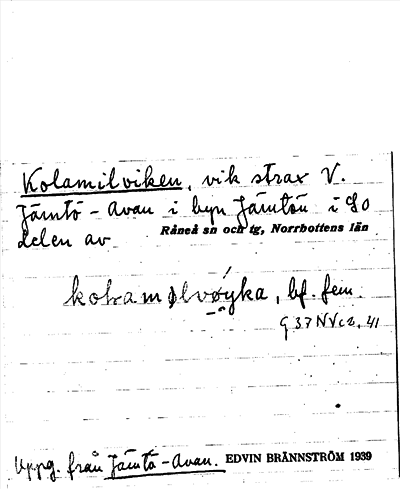 Kolamilviken, vik strax V.
Jämtö-Avan i byn Jämtön i So
delen av Råneå sn och tg, Norrbottens län
kolramilvøyka, bf. fem.
G 37 NV c2, 41
Uppg. från Jämtö-Avan. EDVIN BRÄNNSTRÖM 1939